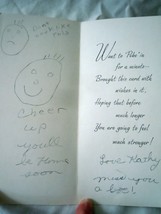 Cheer
up
you'll
be Home
soon
Want to 'Poke' in
for a minute—
Brought this card with
wishes in it,
Hoping that before
much longer
You are going to feel
much stronger!
Love Kathy
miss you
a lot!